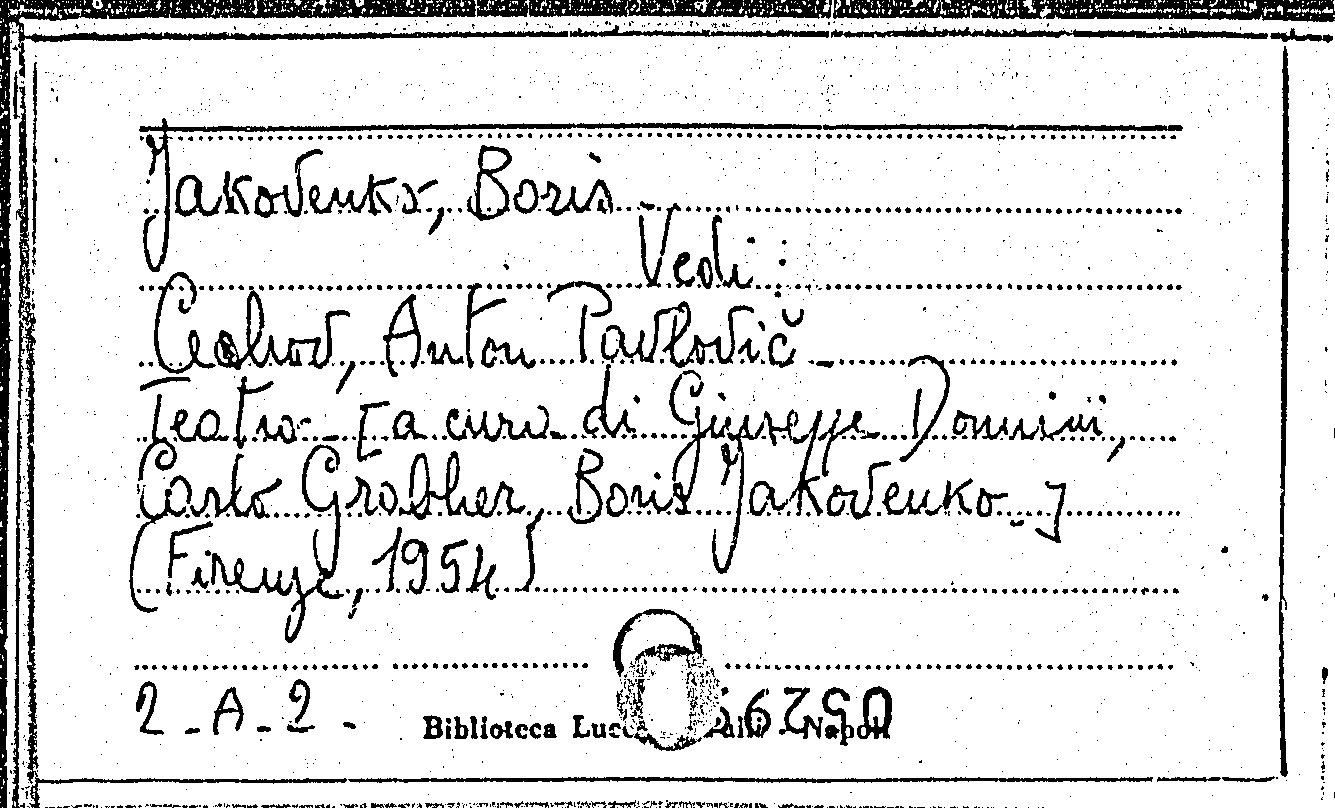 Jakovenko, Boris -
Vedi:
Cechov, Anton Pavlovič -
Teatro - [a cura di Giuseppe Donnini,
Carlo Grabher, Boris Jakovenko -]
(Firenze, 1954)
2 - A - 2 -
Biblioteca Napoli